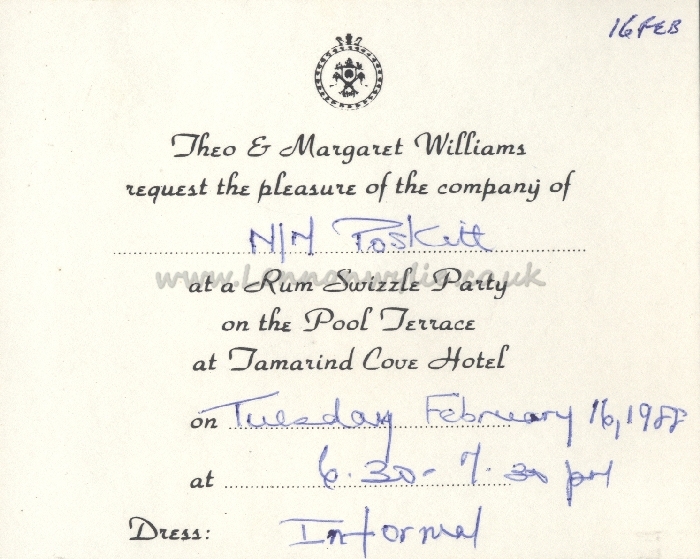 16 FEB
Theo & Margaret Williams
request the pleasure of the company of
M/M Poskitt
www.Lennonwylie.co.uk
at a Rum Swizzle Party
on the Pool Terrace
at Tamarind Cove Hotel
on Tuesday February 16, 1988
at 6.30 - 7.30 pm
Dress: Informal